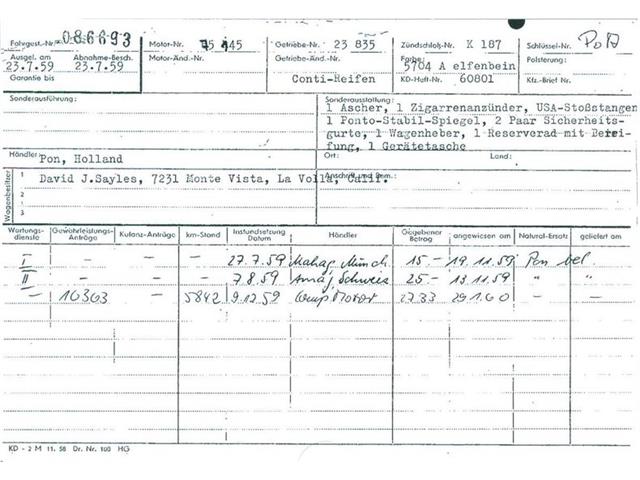 Fahrgest.-Nr. 086693 Motor-Nr. Getriebe-Nr. 23 835 Zündschloß-Nr. K 187 Schlüssel-Nr. PoD
Ausgel. am Abnahme-Besch. Motor-Änd.-Nr. Getriebe-Änd.-Nr. Farbe: 5704 A elfenbein Polsterung:
23.7.59 23.7.59 KD-Heft-Nr. 60801 Kfz.-Brief Nr.
Garantie bis Conti-Reifen
Sonderausführung: Sonderausstattung:
1 Ascher, 1 Zigarrenanzünder, USA-Stoßstangen
1 Ponto-Stabil-Spiegel, 2 Paar Sicherheits-
gurte, 1 Wagenheber, 1 Reserverad mit Berei-
fung, 1 Gerätetasche
Händler Pon, Holland Ort: Land:
Wagenbesitzer 1 David J.Sayles, 7231 Monte Vista, La Volla, Calif. Anschrift und Bem.:
2
3
Wartungs-dienste Gewährleistungs-Anträge Kulanz-Anträge km-Stand Instandsetzung Datum Händler Gegebener Betrag angewiesen am Natural-Ersatz geliefert am
I - - - 27.7.59 Mahag, Münch. 15.- 19.11.59 Pon bel
II - - - 7.8.59 Amag, Schweiz 25.- 13.11.59 " "
- 16363 - 5842 9.12.59 Motor 27.33
KD - 2 M 11. 58 Dr. Nr. 100 HG